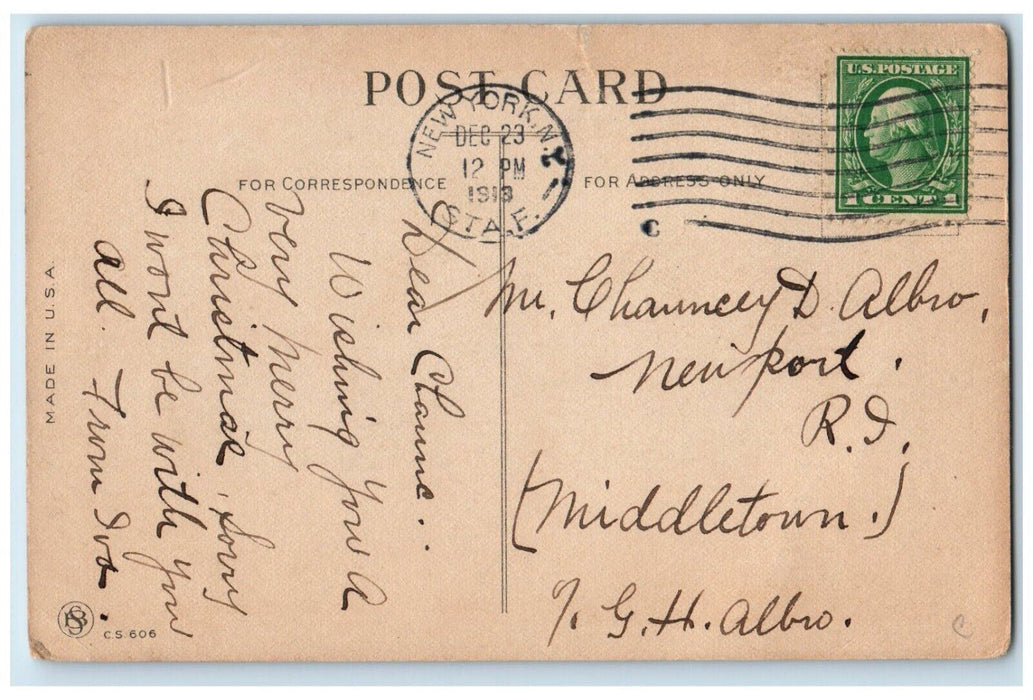 POST CARD
NEW YORK, N.Y.
DEC 23
12 PM
1913
STA. F.
C
U.S. POSTAGE
1 CENT 1
FOR CORRESPONDENCE
FOR ADDRESS ONLY
Dear Chaunc.
Wishing you a
very merry
Christmas. Sorry
I wont be with you
all. From Iva.
Mr. Chauncey D. Albro,
Newport.
R.I.
(Middletown.)
%. G.H. Albro.
MADE IN U.S.A.
C.S. 606
C